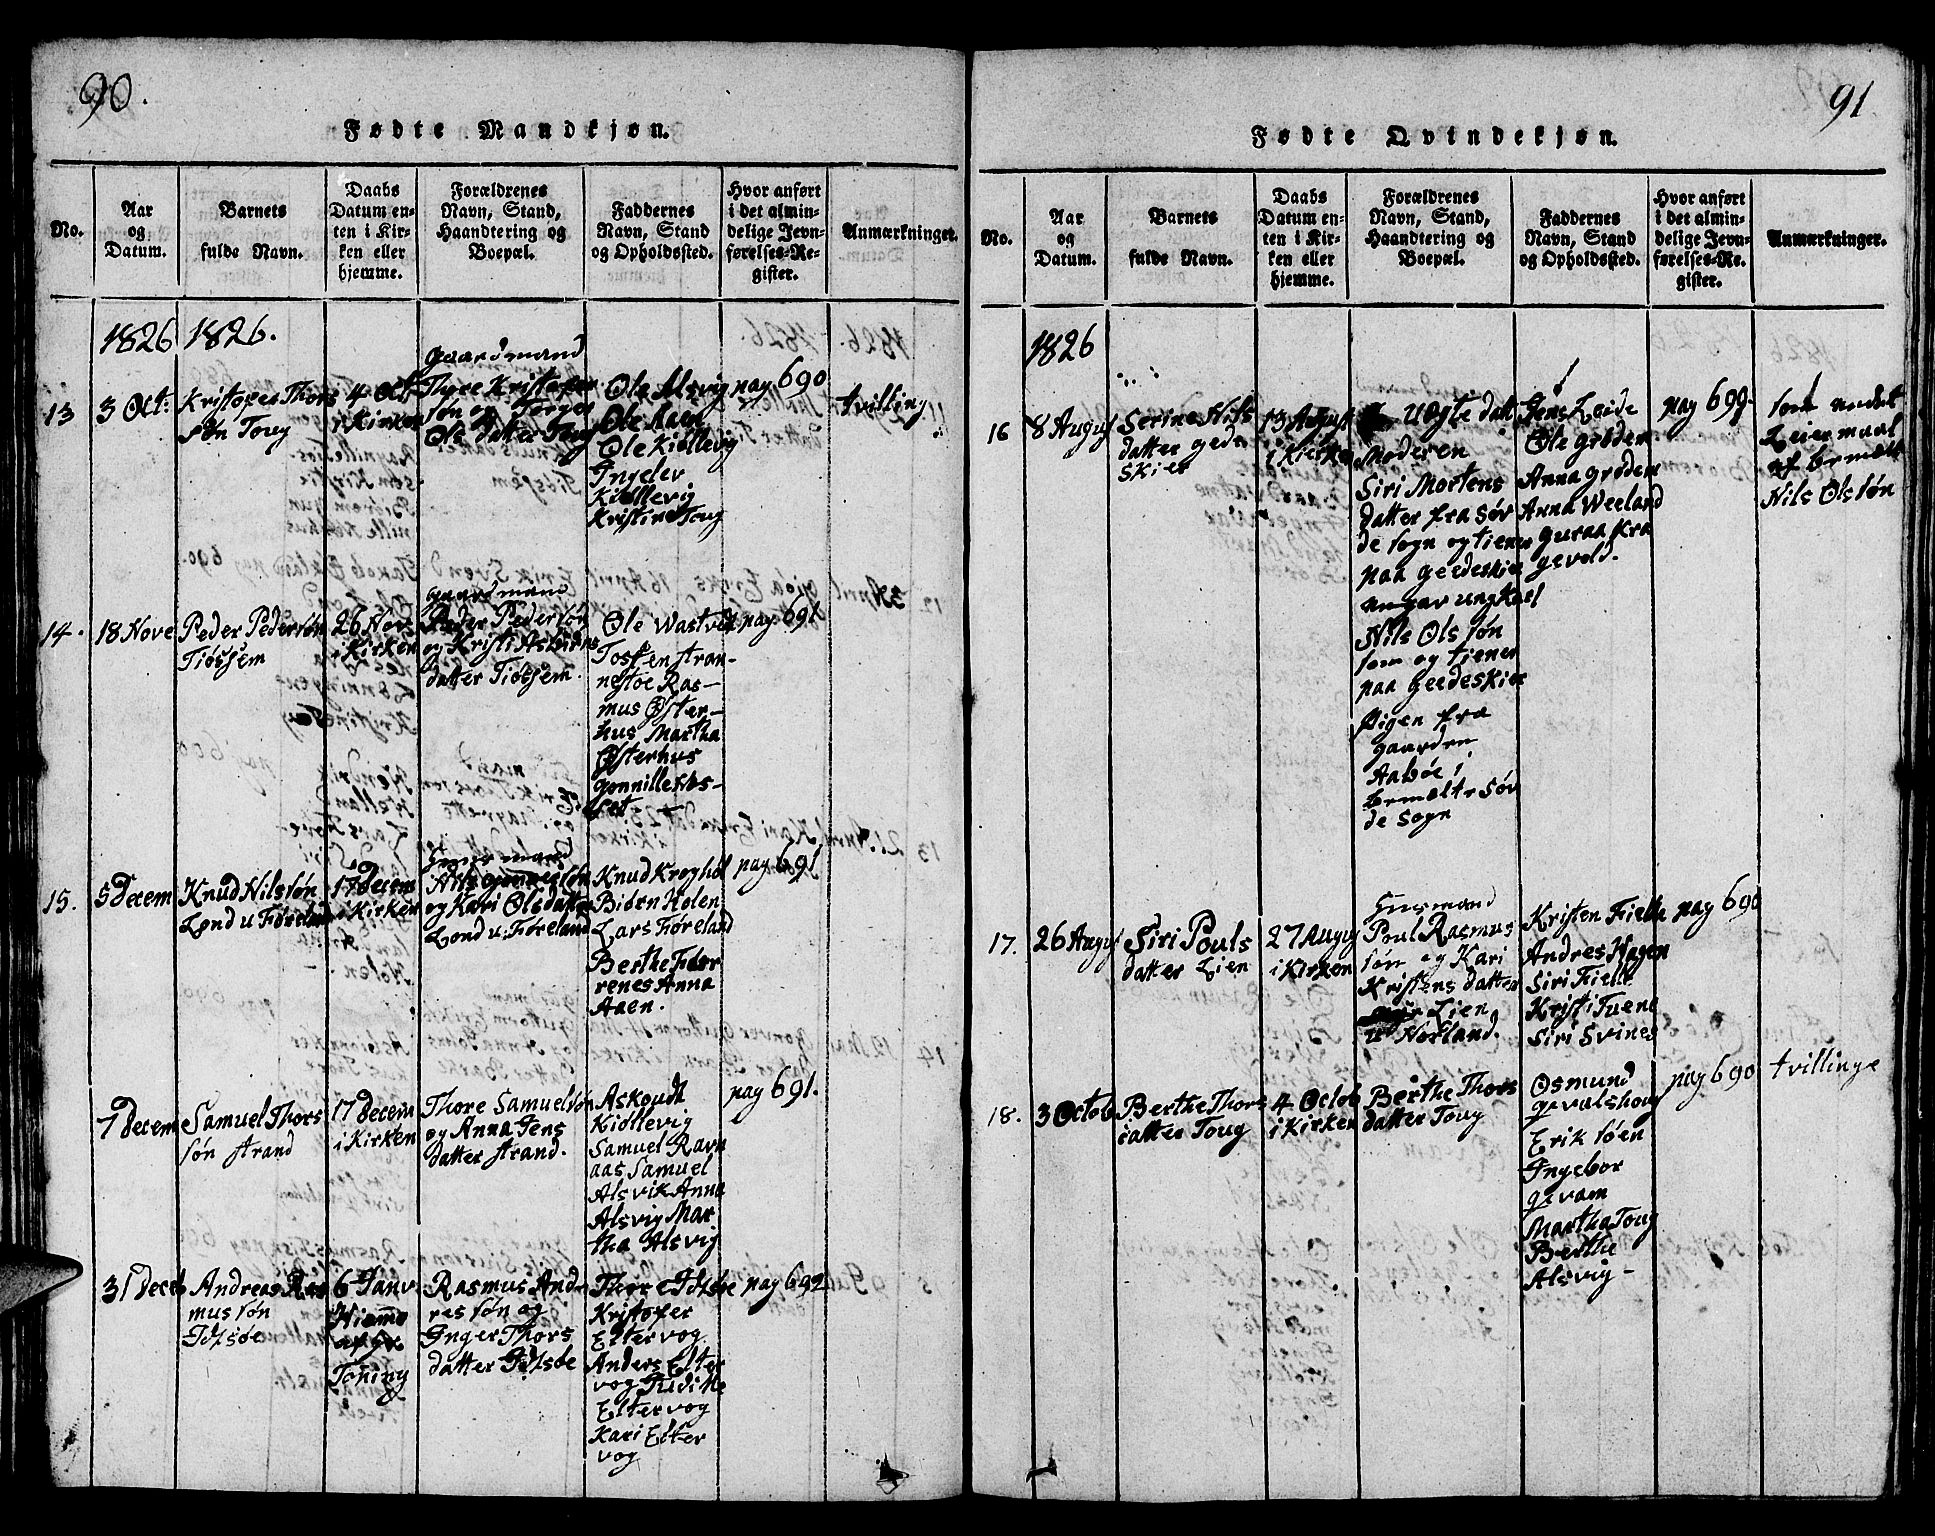 90.
Fødte Mandkjøn.
No.
Aar
og
Datum.
Barnets
fulde Navn.
Daabs
Datum en-
ten i Kir-
ken eller
hjemme.
Forældrenes
Navn, Stand,
Haandtering og
Boepæl.
Faddernes
Navn, Stand
og Opholdssted.
Hvor anført
i det almin-
delige Jevn-
førelses-Re-
gister.
Anmærkninger.
1826
1826.
13
3 Oct:
Kristopes Thors
søn Toug
4 Oct
i Kirken
Gaardmand
Thore Kristofer
søn og
Ols datter Toug
Ole Alsvig
Ole Aaen
Ole Kidllevig
Ingelev
Kidllevig
Kristine Toug
pag 690
tvilling
14.
18 Nove
Peder Pedersøn
Tiøssem
26 Nov
i Kirken
gaardmand
Peder Pedersøn
og Kristi Asbiørns
datter Tiøssem.
Ole Wastvet
Tosten stran-
nestoe Ras-
mus Øster-
hus Martha
Østerhus
gonnille Høs-
set
pag 691
15.
5 Decem
Knud Nilssøn
Lønd u: Føreland
17 decem
i Kirken
Huusmand
Nils gonnersøn
og Kari Olsdatter
Lønd u: Føreland
Knud Kroghøl
Biørn Holen
Lars Føreland
Berthe Fider
renes Anna
Aaen.
pag 691
7 Decem
Samuel Thors
søn strand
17 decem
i Kirken
Thore Samuelsøn
og Anna Jens
datter strand.
Askoudt
Kidllevig
Samuel Ravn
aas Samuel
Alsvik Anna
Alsvig Mar
tha Alsvig
pag 691.
31 Decem
Andreas Ras
mus søn
Idsøe
6 Janv
Hiemme
af
Toning
Rasmus And
res søn og
Inger Thors
datter Idsøe
Thore Idsøe
Kristofer
Eltervog
Anders Elter
vog Judithe
Eltervog
Kari Elter
vog
pag 692
91
Fødte Qvindekjøn.
No.
Aar
og
Datum.
Barnets
fulde Navn.
Daabs
Datum en-
ten i Kir-
ken eller
hjemme.
Forældrenes
Navn, Stand,
Haandtering og
Boepæl.
Faddernes
Navn, Stand
og Opholdssted.
Hvor anført
i det almin-
delige Jevn-
førelses-Re-
gister.
Anmærkninger.
1826
16
8 Augus
Serine Nils
datter gede
skier
13 August
i Kirken
Uegte datt
Moderen
Siri Mortens
datter fra Søv
de sogn og tiener
paa geedeskier
angav ungkael
Nils Ols søn
som og tiener
paa Geedeskier
Pigen fra
gaarden
Aabøe i
bemælte Søv
de Sogn
Jens Leide
Ole grøden
Anna grøden
Anna Weeland
guraa Kra
gevold.
pag 699.
som andet
Leiermaal
af bemælte
Nils Olssøn
17.
26 Augus
Siri Pouls
datter Lien
27 Augus
i Kirken
Huusmand
Poul Rasmus
søn og Kari
Kristens datter
Lien
u Norland.
Kristen Fielle
Andres Hagen
Siri Fielle
Kristi Tuene
Siri Svines
pag 690
18.
3 Octob
Berthe Thors
datter Toug
4 Octob
i Kirken
Berthe Thors
datter Toug
Osmund
gevalshoug
Erik søen
Ingebor
gevam
Martha Toug
Berthe
Alsvig-
pag 690
tvillinge